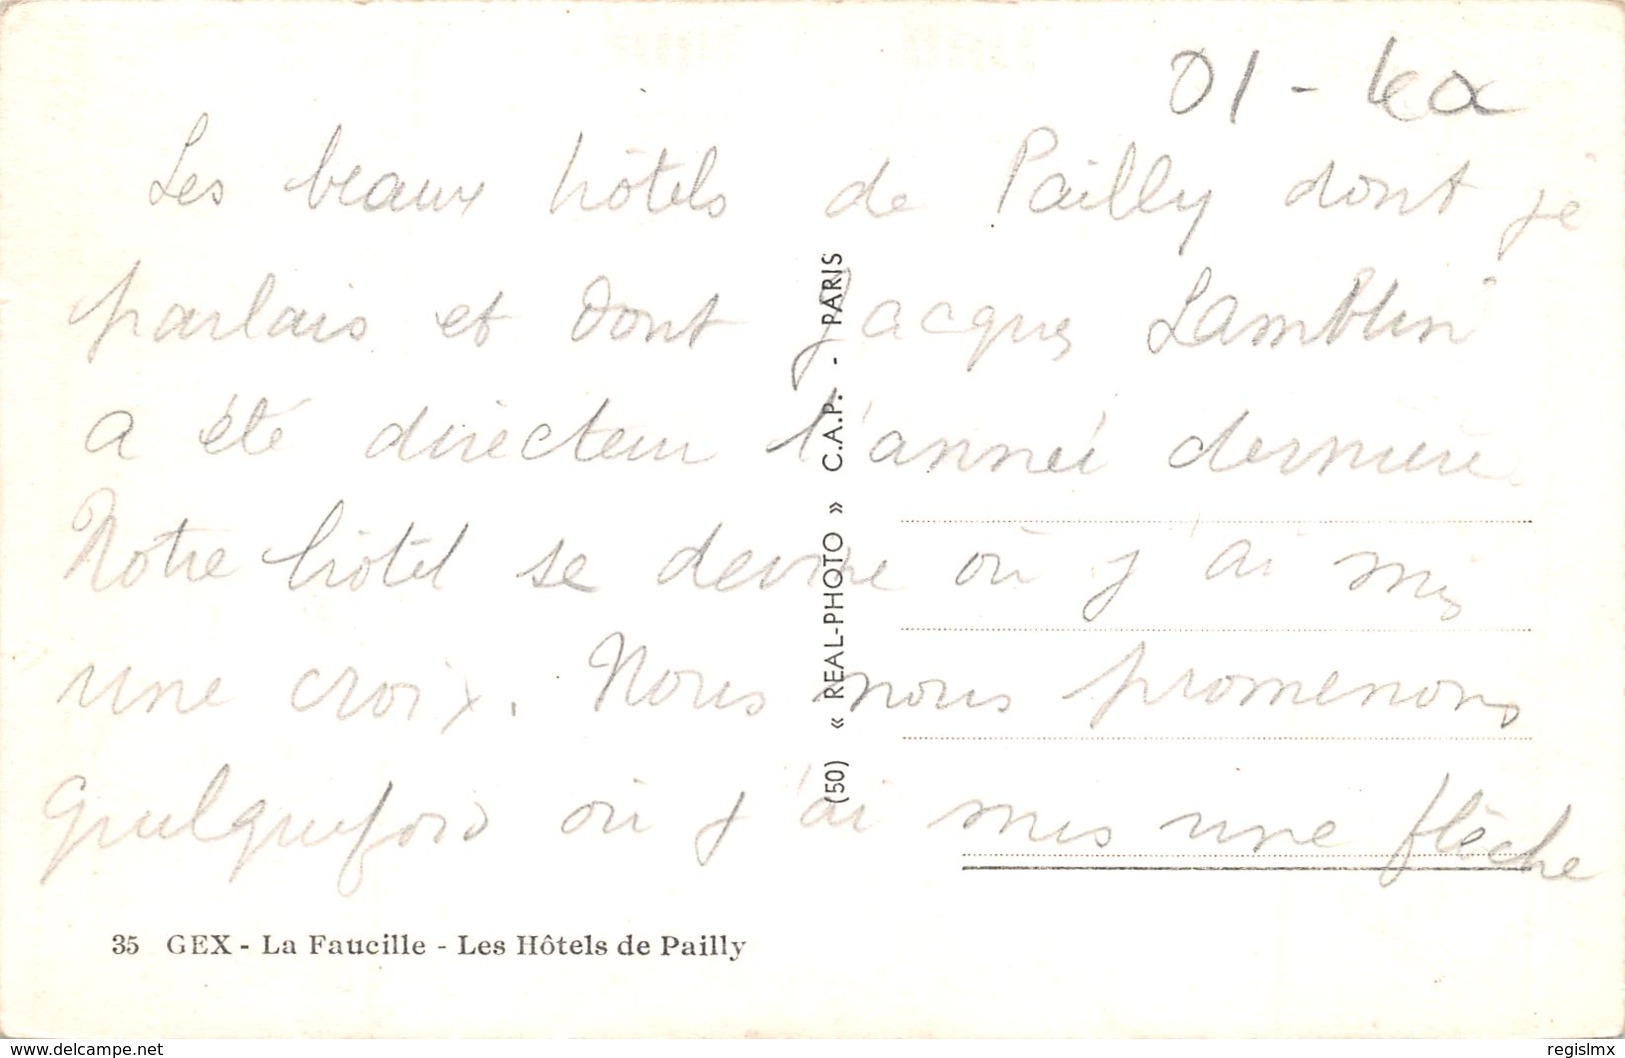 01 -
Les beaux hôtels de Pailly dont je
parlais et dont Jacques Lamblin
a été directeur l'année dernière
Notre hôtel se devine où j'ai mis
une croix. Nous nous promenons
quelquefois où j'ai mis une flèche
(50) « REAL-PHOTO » C.A.P. - PARIS
35 GEX - La Faucille - Les Hôtels de Pailly
www.delcampe.net
regislmx